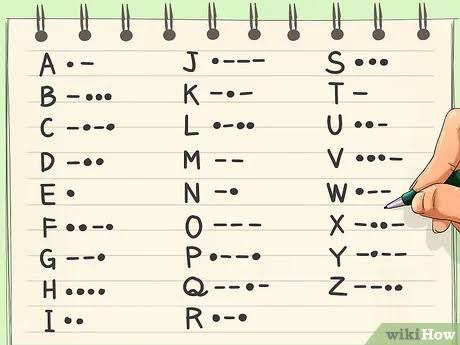 A •–
B –•••
C –•–•
D –••
E •
F ••–•
G ––•
H ••••
I ••
J •–––
K –•–
L •–••
M ––
N –•
O –––
P •––•
Q ––•–
R •–•
S •••
T –
U ••–
V •••–
W •––
X –••–
Y –•––
Z ––••
wikiHow